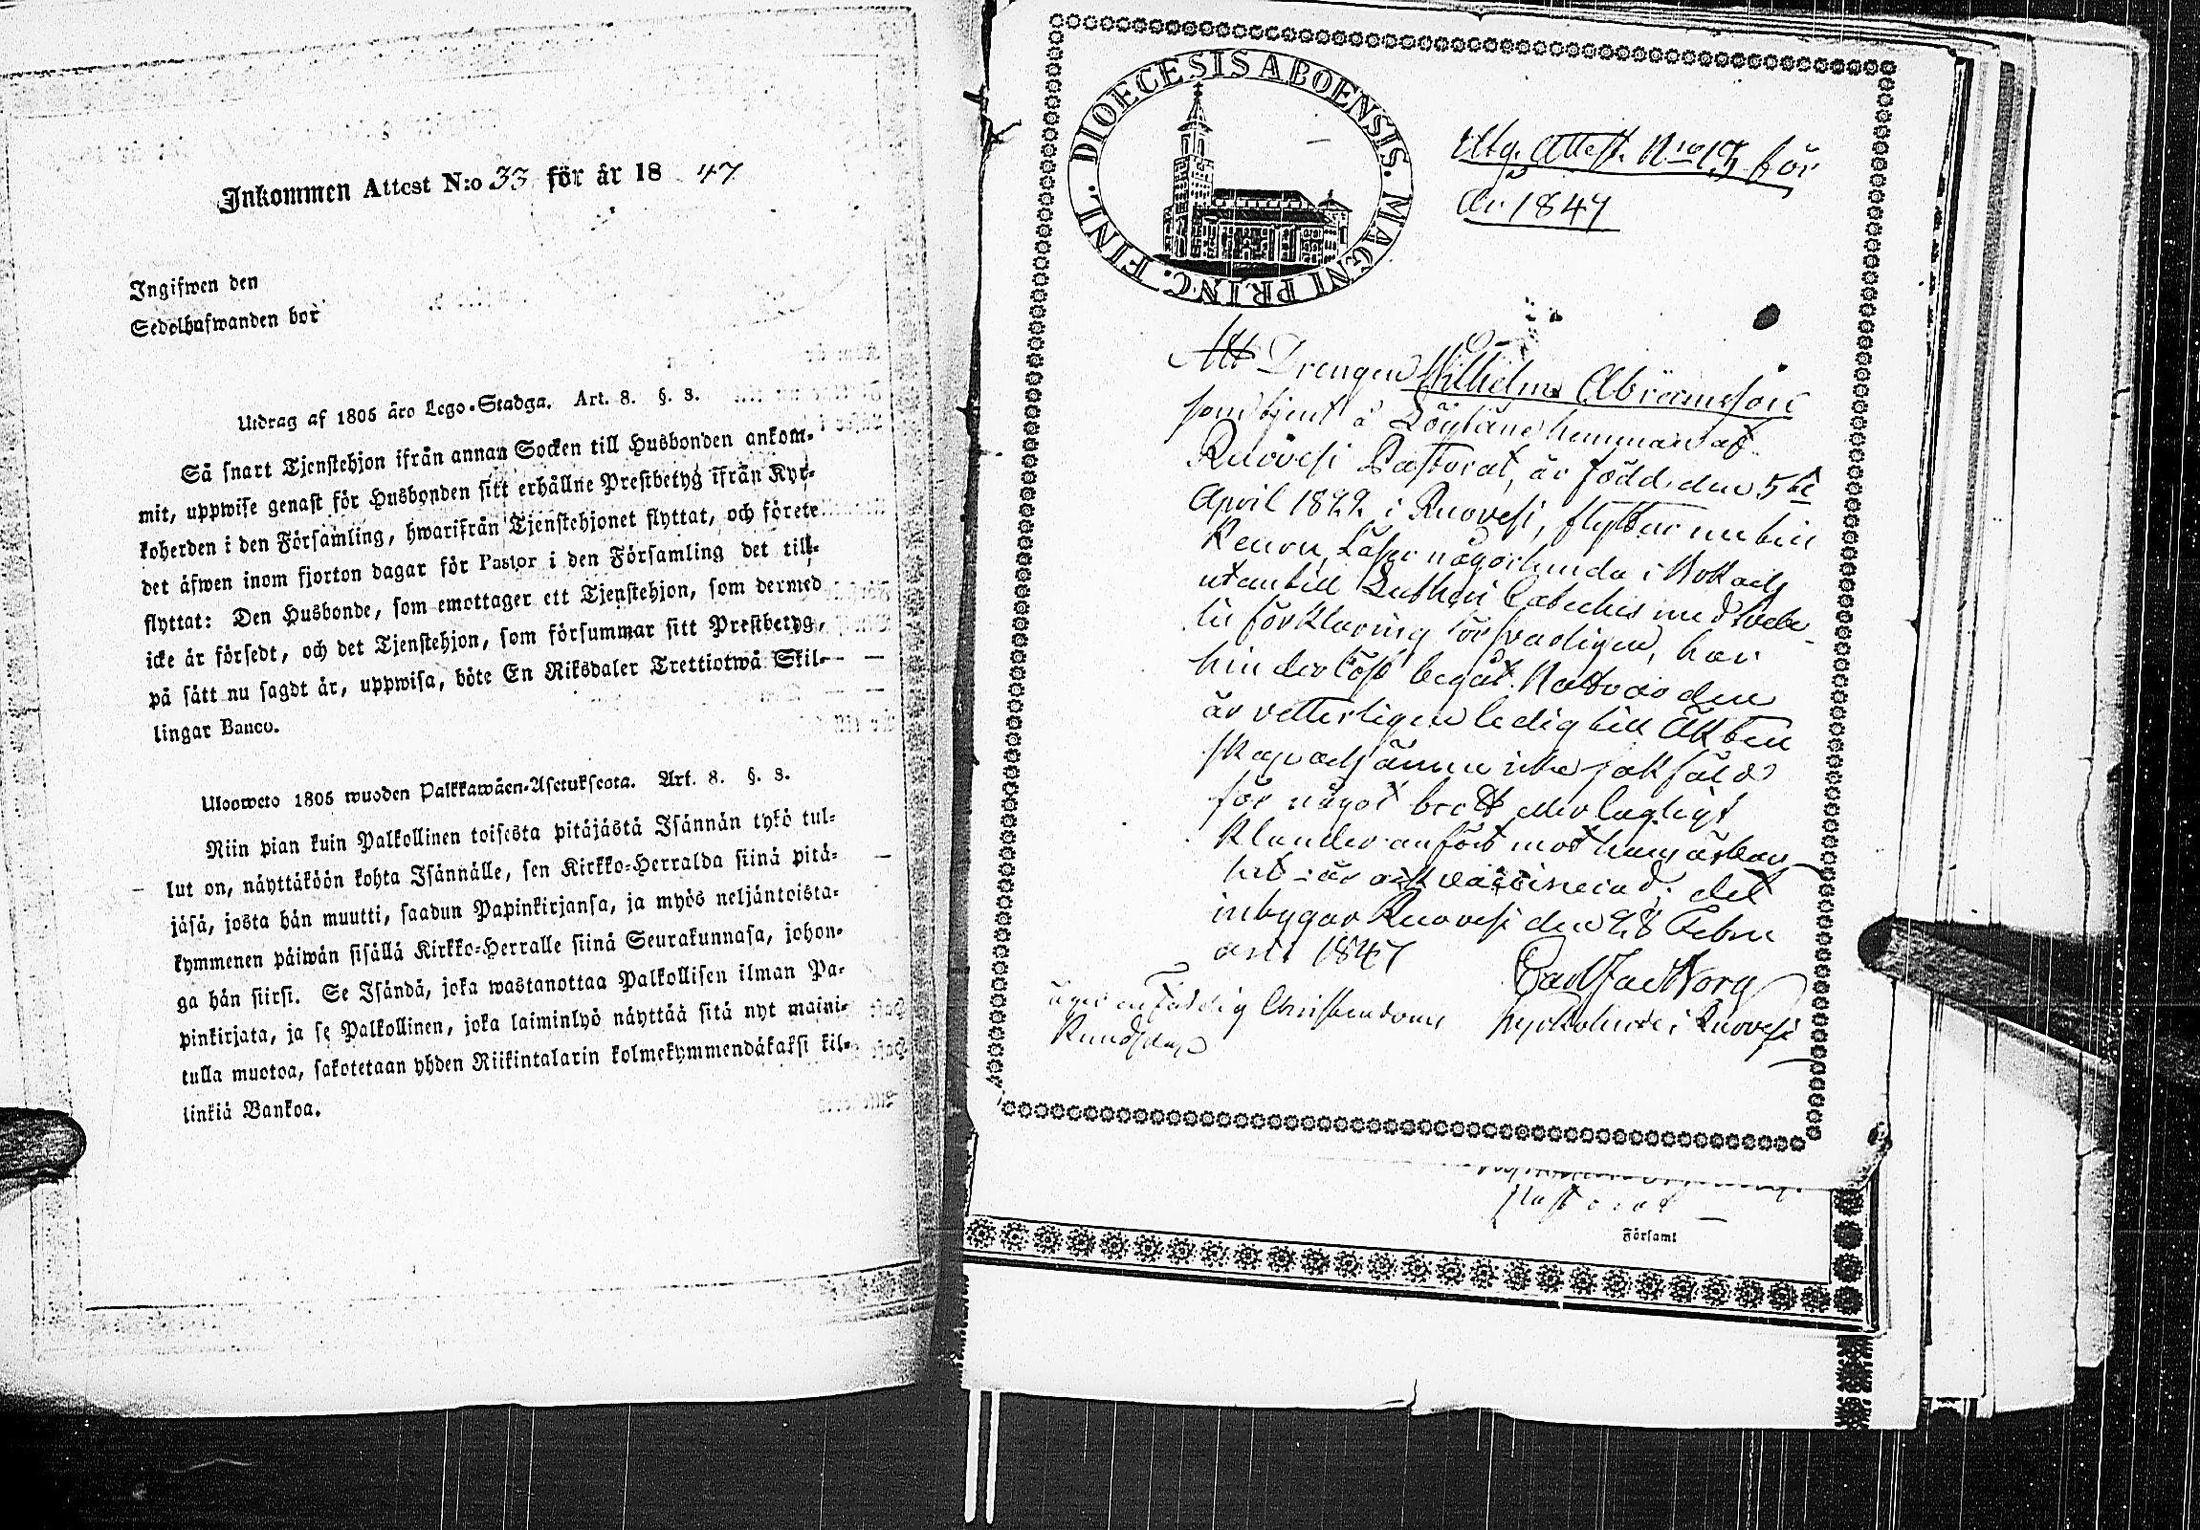 Inkommen Attest N:o 33 för år 18 47
Ingifwen den
Sedelhafwanden bor
Utdrag af 1805 års Lego-Stadga. Art. 8. §. 3.
Så snart Tjenstehjon ifrån annan Socken till Husbonden ankom-
mit, uppwise genast för Husbonden sitt erhållne Prestbetyg ifrån Kyr-
koherden i den Församling, hwarifrån Tjenstehjonet flyttat, och förete
det äfwen inom fjorton dagar för Pastor i den Församling det till-
flyttat: Den Husbonde, som emottager ett Tjenstehjon, som dermed
icke är försedt, och det Tjenstehjon, som försummar sitt Prestbetyg,
på sätt nu sagdt är, uppwisa, böte En Riksdaler Trettiotwå Skil-
lingar Banco.
Ulosweto 1805 wuoden Palkkawäen-Asetuksesta. Art. 8. §. 3.
Niin pian kuin Palkollinen toisesta pitäjästä Isännän tykö tul-
lut on, näyttäköön kohta Isännälle, sen Kirkko-Herralda siinä pitä-
jäsä, josta hän muutti, saadun Papinkirjansa, ja myös neljäntoista-
kymmenen päiwän sisällä Kirkko-Herralle siinä Seurakunnasa, johon-
ga hän siirsi. Se Isändä, joka wastanottaa Palkollisen ilman Pa-
pinkirjata, ja se Palkollinen, joka laiminlyö näyttää sitä nyt maini-
tulla muotoa, sakotetaan yhden Riikintalarin kolmekymmendäkaksi kil-
linkiä Bankoa.
DIOECESIS ABOENSIS. MAGNI PRINC. FINL.
Utg. Attest. N:ro för
År 1847
Att Drengen Wilhelm Abramsson
som tjent å Löytäne hemman af
Ruovesi Pastorat, är född den 5te
April 1822 i Ruovesi, flyttar nu till
Keuru, Läser någorlunda i Bok och
utantill Lutheri Catches med
förklaring försvarligen, har
hinderlöst begått Nattvarden
är vetterligen ledig till Äkten
skap och ännu icke sakfäld
för något brott eller lagligt
klander anfört mot hans ärbar
het - är vaccinerad; det
intygar Ruovesi den 28 Febru
arii 1847
Carl Jac Borg
Kyrkoherde i Ruovesi
äger enfaldig Christendoms
Kundskap
Pastorat
Församl